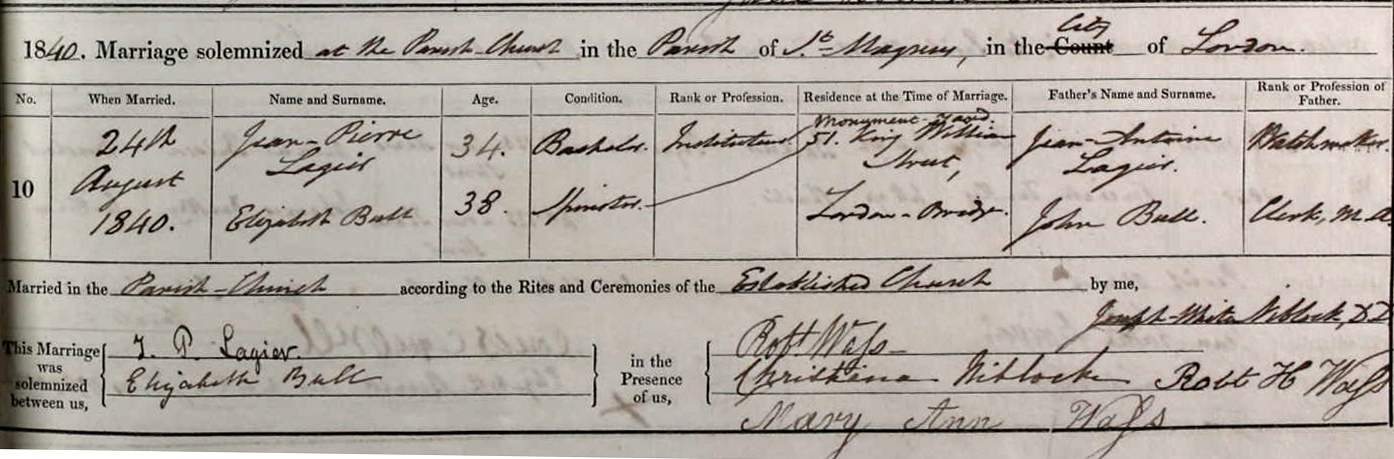 1840. Marriage solemnized at the Parish Church in the Parish of St. Magnus, in the County City of London.
No. When Married. Name and Surname. Age. Condition. Rank or Profession. Residence at the Time of Marriage. Father's Name and Surname. Rank or Profession of Father.
10
24th August 1840.
Jean-Pierre Lagier
34.
Bachelor.
Instituteur
Monument-Yard. 51. King William Street,
Jean-Antoine Lagier.
Watchmaker.
Elizabeth Bull
38.
Spinster.
London-Bridge.
John Bull.
Clerk, M.A.
Married in the Parish-Church according to the Rites and Ceremonies of the Established Church by me,
Joseph White Niblock, D.D.
This Marriage was solemnized between us,
J. P. Lagier.
Elizabeth Bull
in the Presence of us,
Robt Wass
Christiana Niblock Robt H Wass
Mary Ann Wass